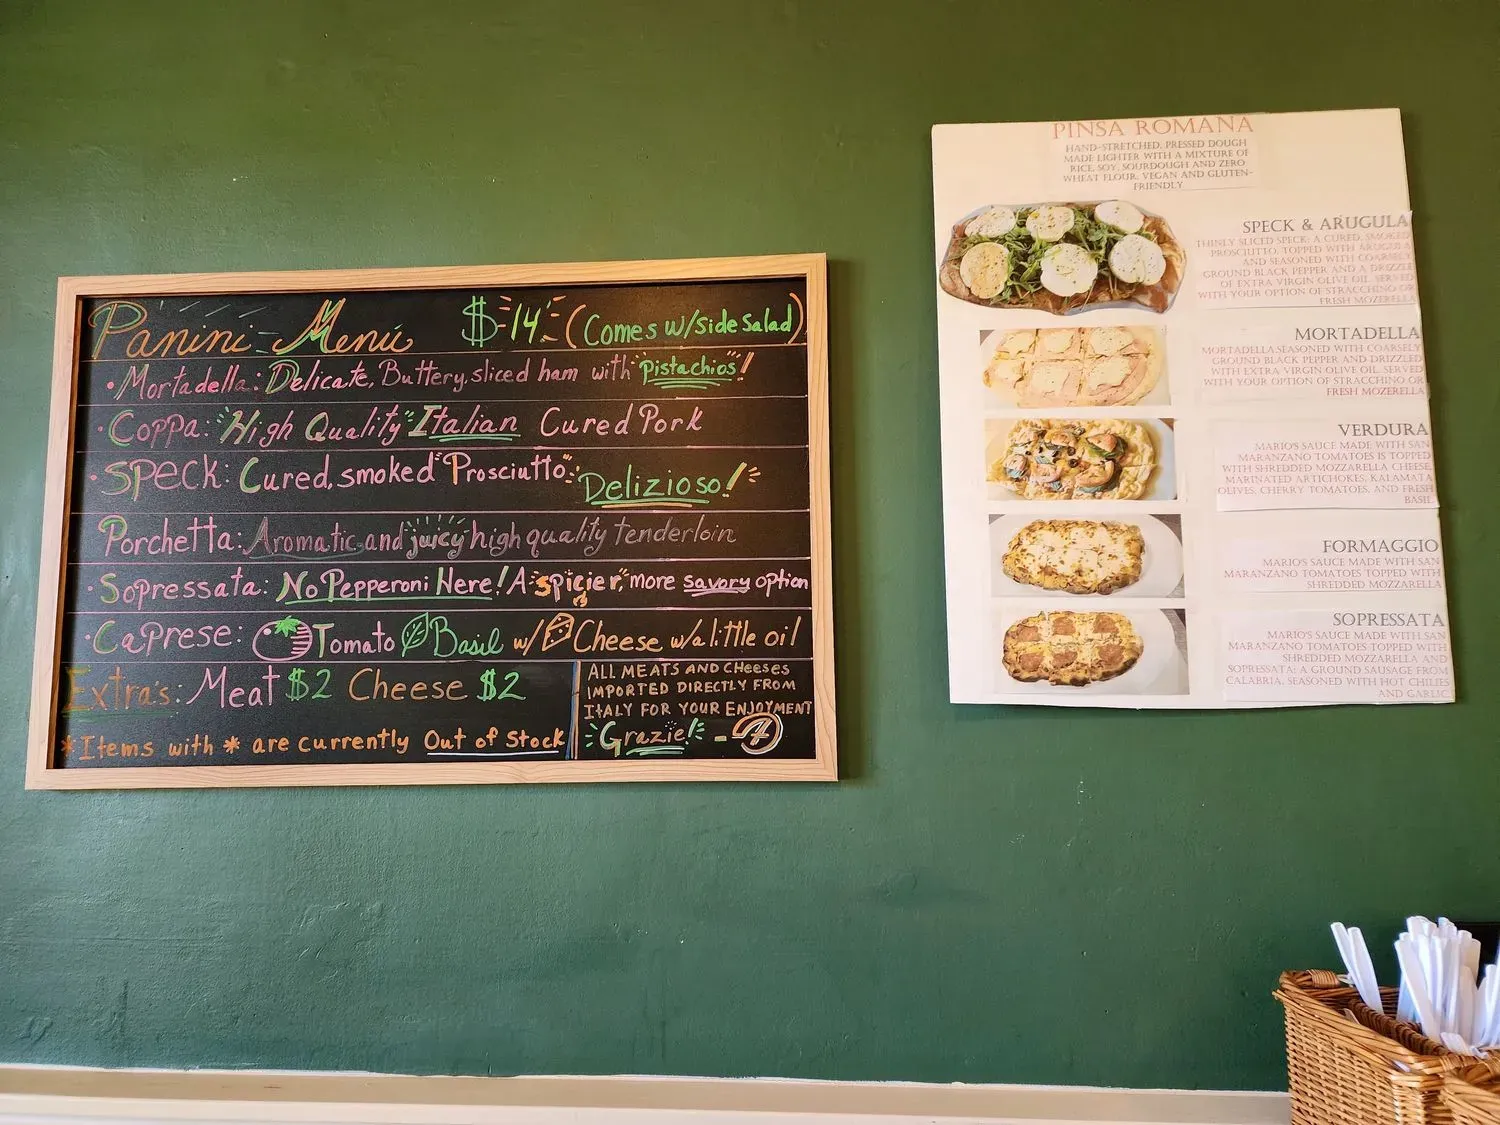 Panini Menú $14 (Comes w/side salad)
• Mortadella: Delicate, Buttery, sliced ham with Pistachios!
• Coppa: "High Quality" Italian Cured Pork
• SPECK: Cured, smoked "Prosciutto" Delizioso!
Porchetta: Aromatic and juicy high quality tenderloin
• Sopressata: No Pepperoni Here! A spicier, more savory option
• Caprese: Tomato Basil w/ Cheese w/a little oil
Extra's: Meat $2 Cheese $2
* Items with * are currently Out of Stock
ALL MEATS AND CHEESES
IMPORTED DIRECTLY FROM
ITALY FOR YOUR ENJOYMENT
Grazie! -
PINSA ROMANA
HAND-STRETCHED, PRESSED DOUGH
MADE LIGHTER WITH A MIXTURE OF
RICE, SOY, SOURDOUGH AND ZERO
WHEAT FLOUR. VEGAN AND GLUTEN-
FRIENDLY
SPECK & ARUGULA
THINLY SLICED SPECK: A CURED, SMOKED
PROSCIUTTO, TOPPED WITH ARUGULA
AND SEASONED WITH COARSELY
GROUND BLACK PEPPER AND A DRIZZLE
OF EXTRA VIRGIN OLIVE OIL. SERVED
WITH YOUR OPTION OF STRACCHINO OR
FRESH MOZERELLA
MORTADELLA
MORTADELLA SEASONED WITH COARSELY
GROUND BLACK PEPPER AND DRIZZLED
WITH EXTRA VIRGIN OLIVE OIL. SERVED
WITH YOUR OPTION OF STRACCHINO OR
FRESH MOZERELLA
VERDURA
MARIO'S SAUCE MADE WITH SAN
MARANZANO TOMATOES IS TOPPED
WITH SHREDDED MOZZARELLA CHEESE,
MARINATED ARTICHOKES, KALAMATA
OLIVES, CHERRY TOMATOES, AND FRESH
BASIL
FORMAGGIO
MARIO'S SAUCE MADE WITH SAN
MARANZANO TOMATOES TOPPED WITH
SHREDDED MOZZARELLA
SOPRESSATA
MARIO'S SAUCE MADE WITH SAN
MARANZANO TOMATOES TOPPED WITH
SHREDDED MOZZARELLA AND
SOPRESSATA: A GROUND SAUSAGE FROM
CALABRIA, SEASONED WITH HOT CHILIES
AND GARLIC